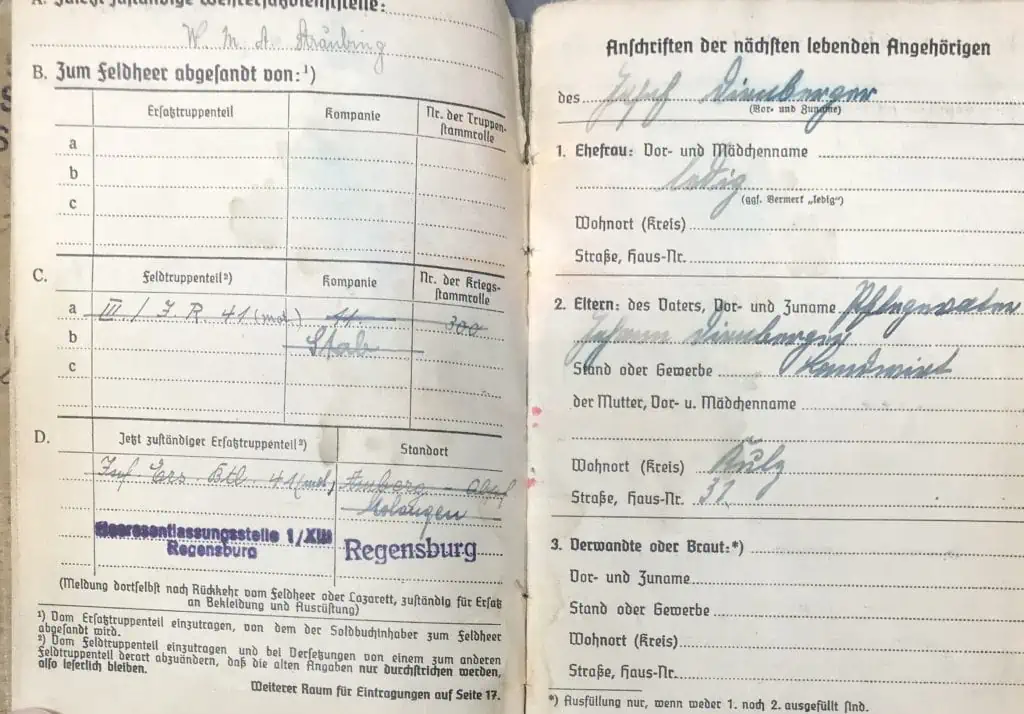 A. Jetzt zuständige Wehrersatzdienststelle:
W. M. A. Sträubing
B. Zum Feldheer abgesandt von:¹)
Ersatztruppenteil Kompanie Nr. der Truppen-
stammrolle
a
b
c
C. Feldtruppenteil²) Kompanie Nr. der Kriegs-
stammrolle
a III./ J. R. 41 (mot.) 11. 300
b Stab
c
D. Jetzt zuständiger Ersatztruppenteil²) Standort
Inf. Ers. Btl. 41 (mot.) Amberg
Heeresentlassungsstelle 1/XIII
Regensburg Regensburg
(Meldung dortselbst nach Rückkehr vom Feldheer oder Lazarett, zuständig für Ersatz
an Bekleidung und Ausrüstung)
¹) Vom Ersatztruppenteil einzutragen, von dem der Soldbuchinhaber zum Feldheer
abgesandt wird.
²) Vom Feldtruppenteil einzutragen und bei Versetzungen von einem zum anderen
Feldtruppenteil derart abzuändern, daß die alten Angaben nur durchstrichen werden,
also leserlich bleiben.
Weiterer Raum für Eintragungen auf Seite 17.
Anschriften der nächsten lebenden Angehörigen
des Josef Dirnberger
(Vor- und Zuname)
1. Ehefrau: Vor- und Mädchenname
ledig
(ggf. Vermerk „ledig“)
Wohnort (Kreis)
Straße, Haus-Nr.
2. Eltern: des Vaters, Vor- und Zuname Pflegevater
Johann Dirnberger
Stand oder Gewerbe Landwirt
der Mutter, Vor- u. Mädchenname
Wohnort (Kreis) Kulz
Straße, Haus-Nr. 32
3. Verwandte oder Braut:*)
Vor- und Zuname
Stand oder Gewerbe
Wohnort (Kreis)
Straße, Haus-Nr.
*) Ausfüllung nur, wenn weder 1. noch 2. ausgefüllt sind.